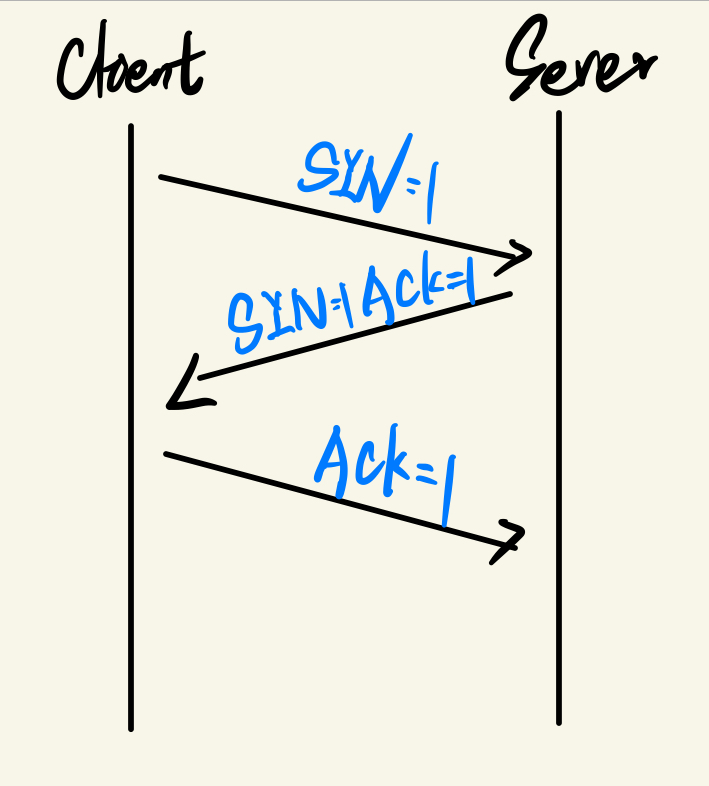 Client
Server
SYN=1
SYN=1 Ack=1
Ack=1